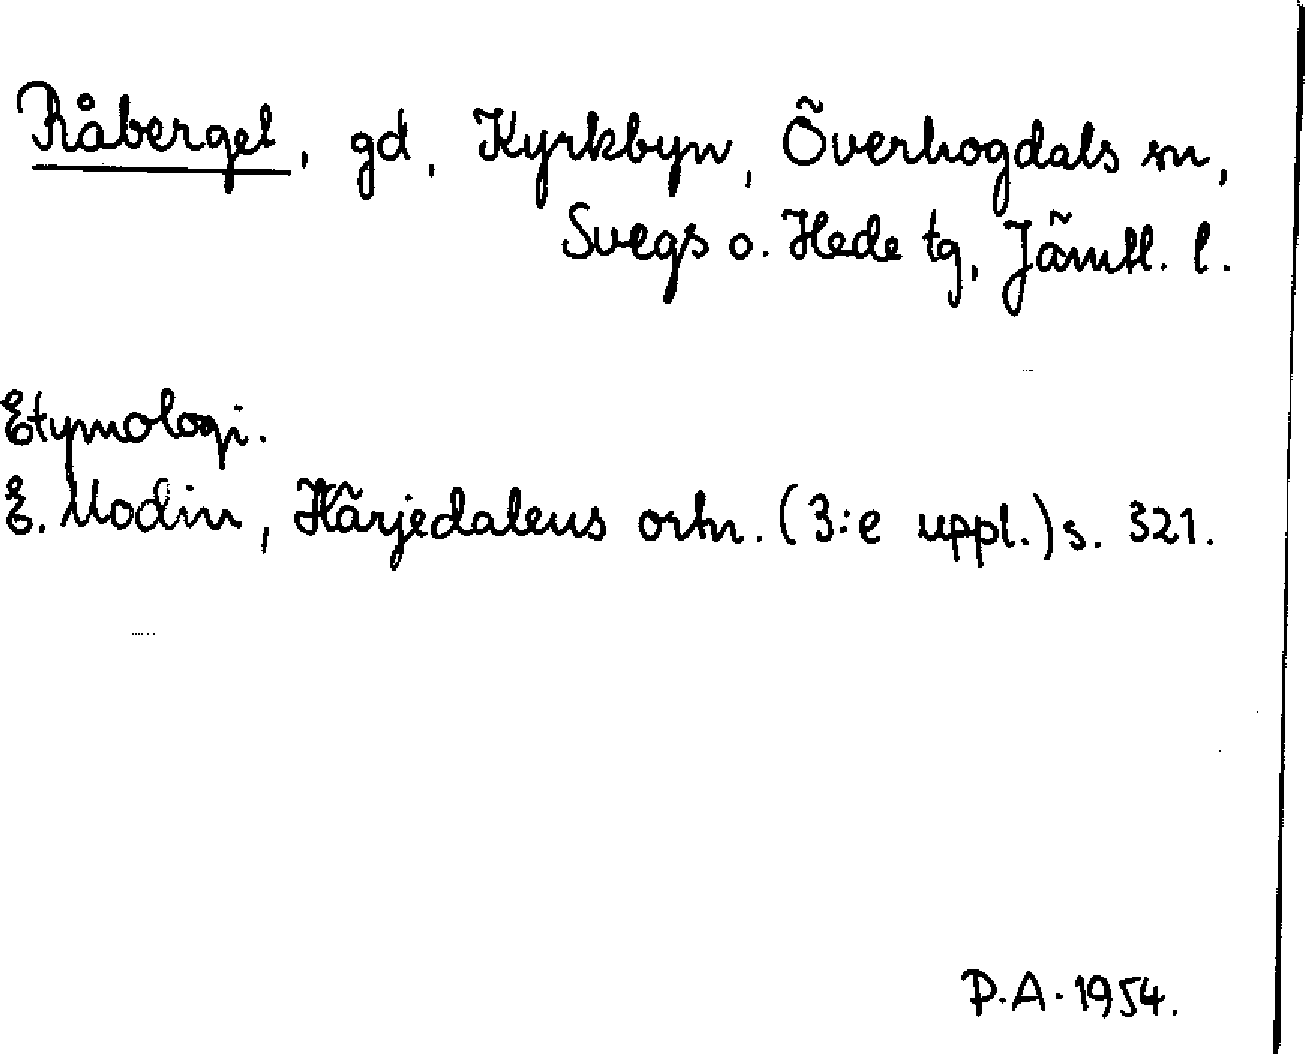 Råberget, gd, Kyrkbyn, Överhogdals sn,
Svegs o. Hede tg, Jämtl. l.
Etymologi.
E. Modin, Härjedalens ortn. (3:e uppl.) s. 321.
P.A. 1954.